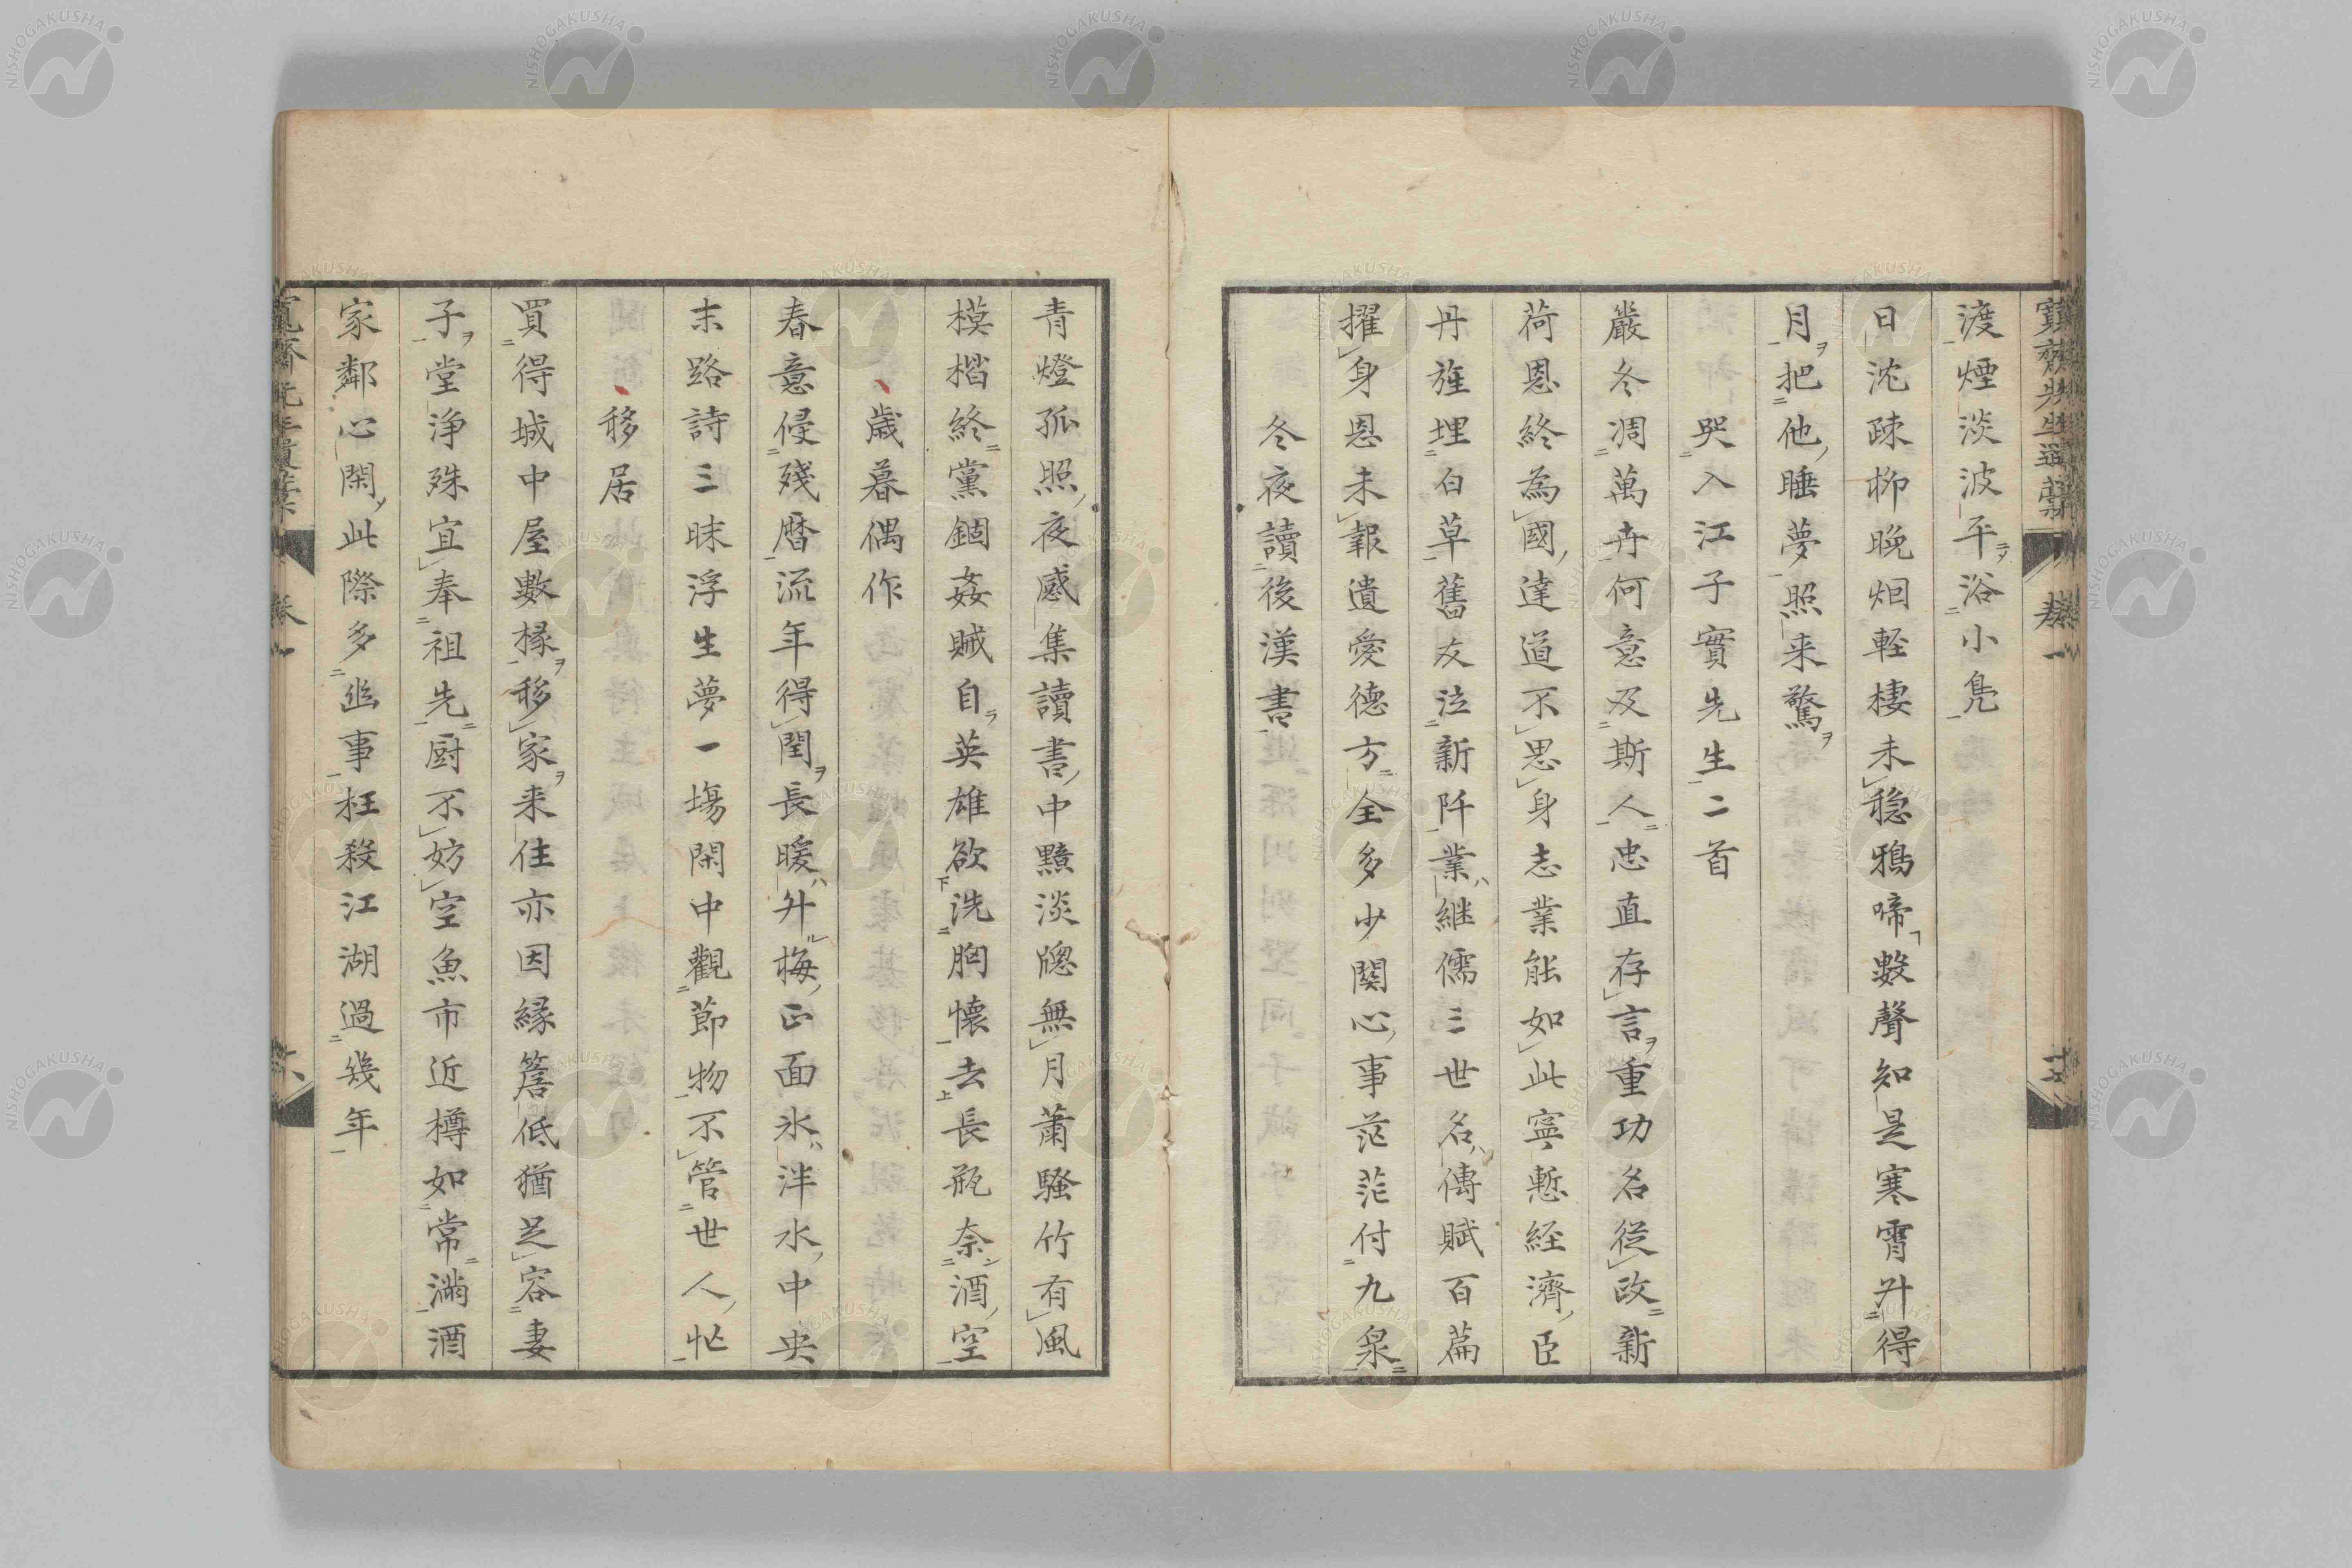 渡煙淡波平浴小鳧
日沈疎柳晚烟軽棲未穏鴉啼數聲知是寒霄升得
月把他睡夢照来驚
哭入江子實先生二首
嚴冬凋萬卉何意及斯人忠直存言重功名従政新
荷恩終為國達道不思身志業能如此寧慙経濟臣
丹旌埋白草舊友泣新阡業継儒三世名傳賦百篇
擢身恩未報遺愛德方全多少関心事茫茫付九泉
冬夜讀後漢書
青燈孤照夜感集讀書中黯淡牕無月蕭騷竹有風
模楷終黨錮姦賊自英雄欲洗胸懐去長瓶奈酒空
歳暮偶作
春意侵殘暦流年得閏長暖升梅正面氷泮水中央
末路詩三昧浮生夢一塲閑中觀節物不管世人忙
移居
買得城中屋數椽移家来住亦因縁簷低猶足容妻
子堂浄殊宜奉祖先厨不妨空魚市近樽如常滿酒
家鄰心閑此際多幽事枉殺江湖過幾年
巻一
NISHOGAKUSHA